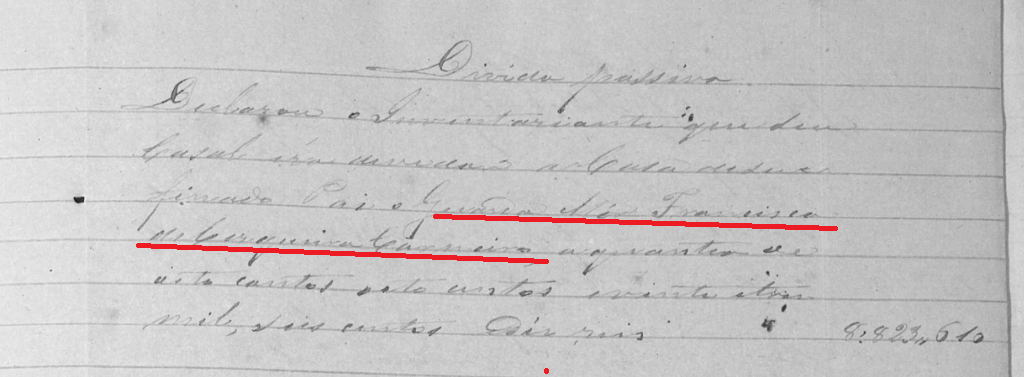 Divida passiva
Declarou o Inventariante que seu
Casal era devedor a Casa de seu
finado Pai o Francisco
de Cerqueira Carneiro, a quantia de
oito contos oito centos e vinte e tres
mil, seis centos e Dés reis 8:823,,610